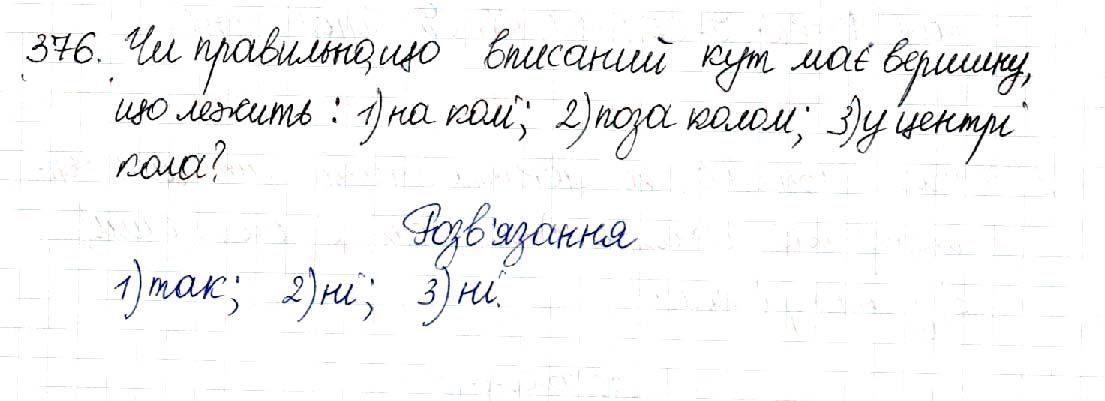 376. Чи правильно, що вписаний кут має вершину,
що лежить: 1) на колі; 2) поза колом; 3) у центрі
кола?
Розв'язання
1) так; 2) ні; 3) ні.